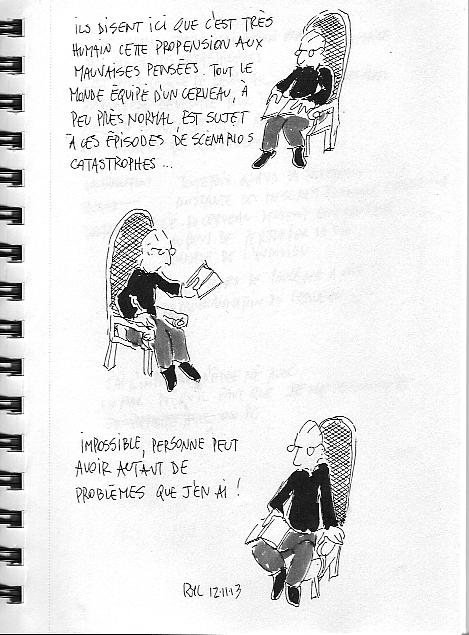 ILS DISENT ICI QUE C'EST TRÈS
HUMAIN CETTE PROPENSION AUX
MAUVAISES PENSÉES. TOUT LE
MONDE ÉQUIPÉ D'UN CERVEAU, À
PEU PRÈS NORMAL, EST SUJET
À CES ÉPISODES DE SCENARIOS
CATASTROPHES...
IMPOSSIBLE, PERSONNE PEUT
AVOIR AUTANT DE
PROBLÈMES QUE J'EN AI !
12.11.13